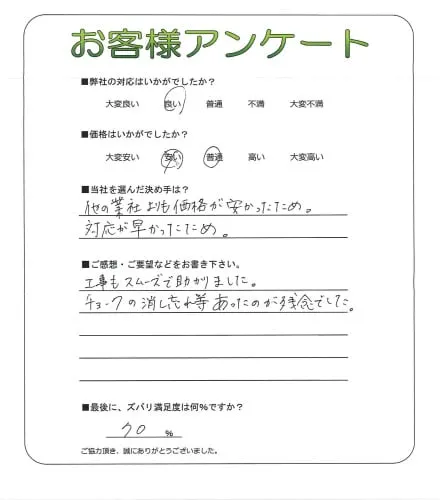 お客様アンケート
■弊社の対応はいかがでしたか？
大変良い 良い 普通 不満 大変不満
■価格はいかがでしたか？
大変安い 安い 普通 高い 大変高い
■当社を選んだ決め手は？
他の業社よりも価格が安かったため。
対応が早かったため。
■ご感想・ご要望などをお書き下さい。
工事もスムーズで助かりました。
チョークの消し忘れ等あったのが残念でした。
■最後に、ズバリ満足度は何％ですか？
90 ％
ご協力頂き、誠にありがとうございました。